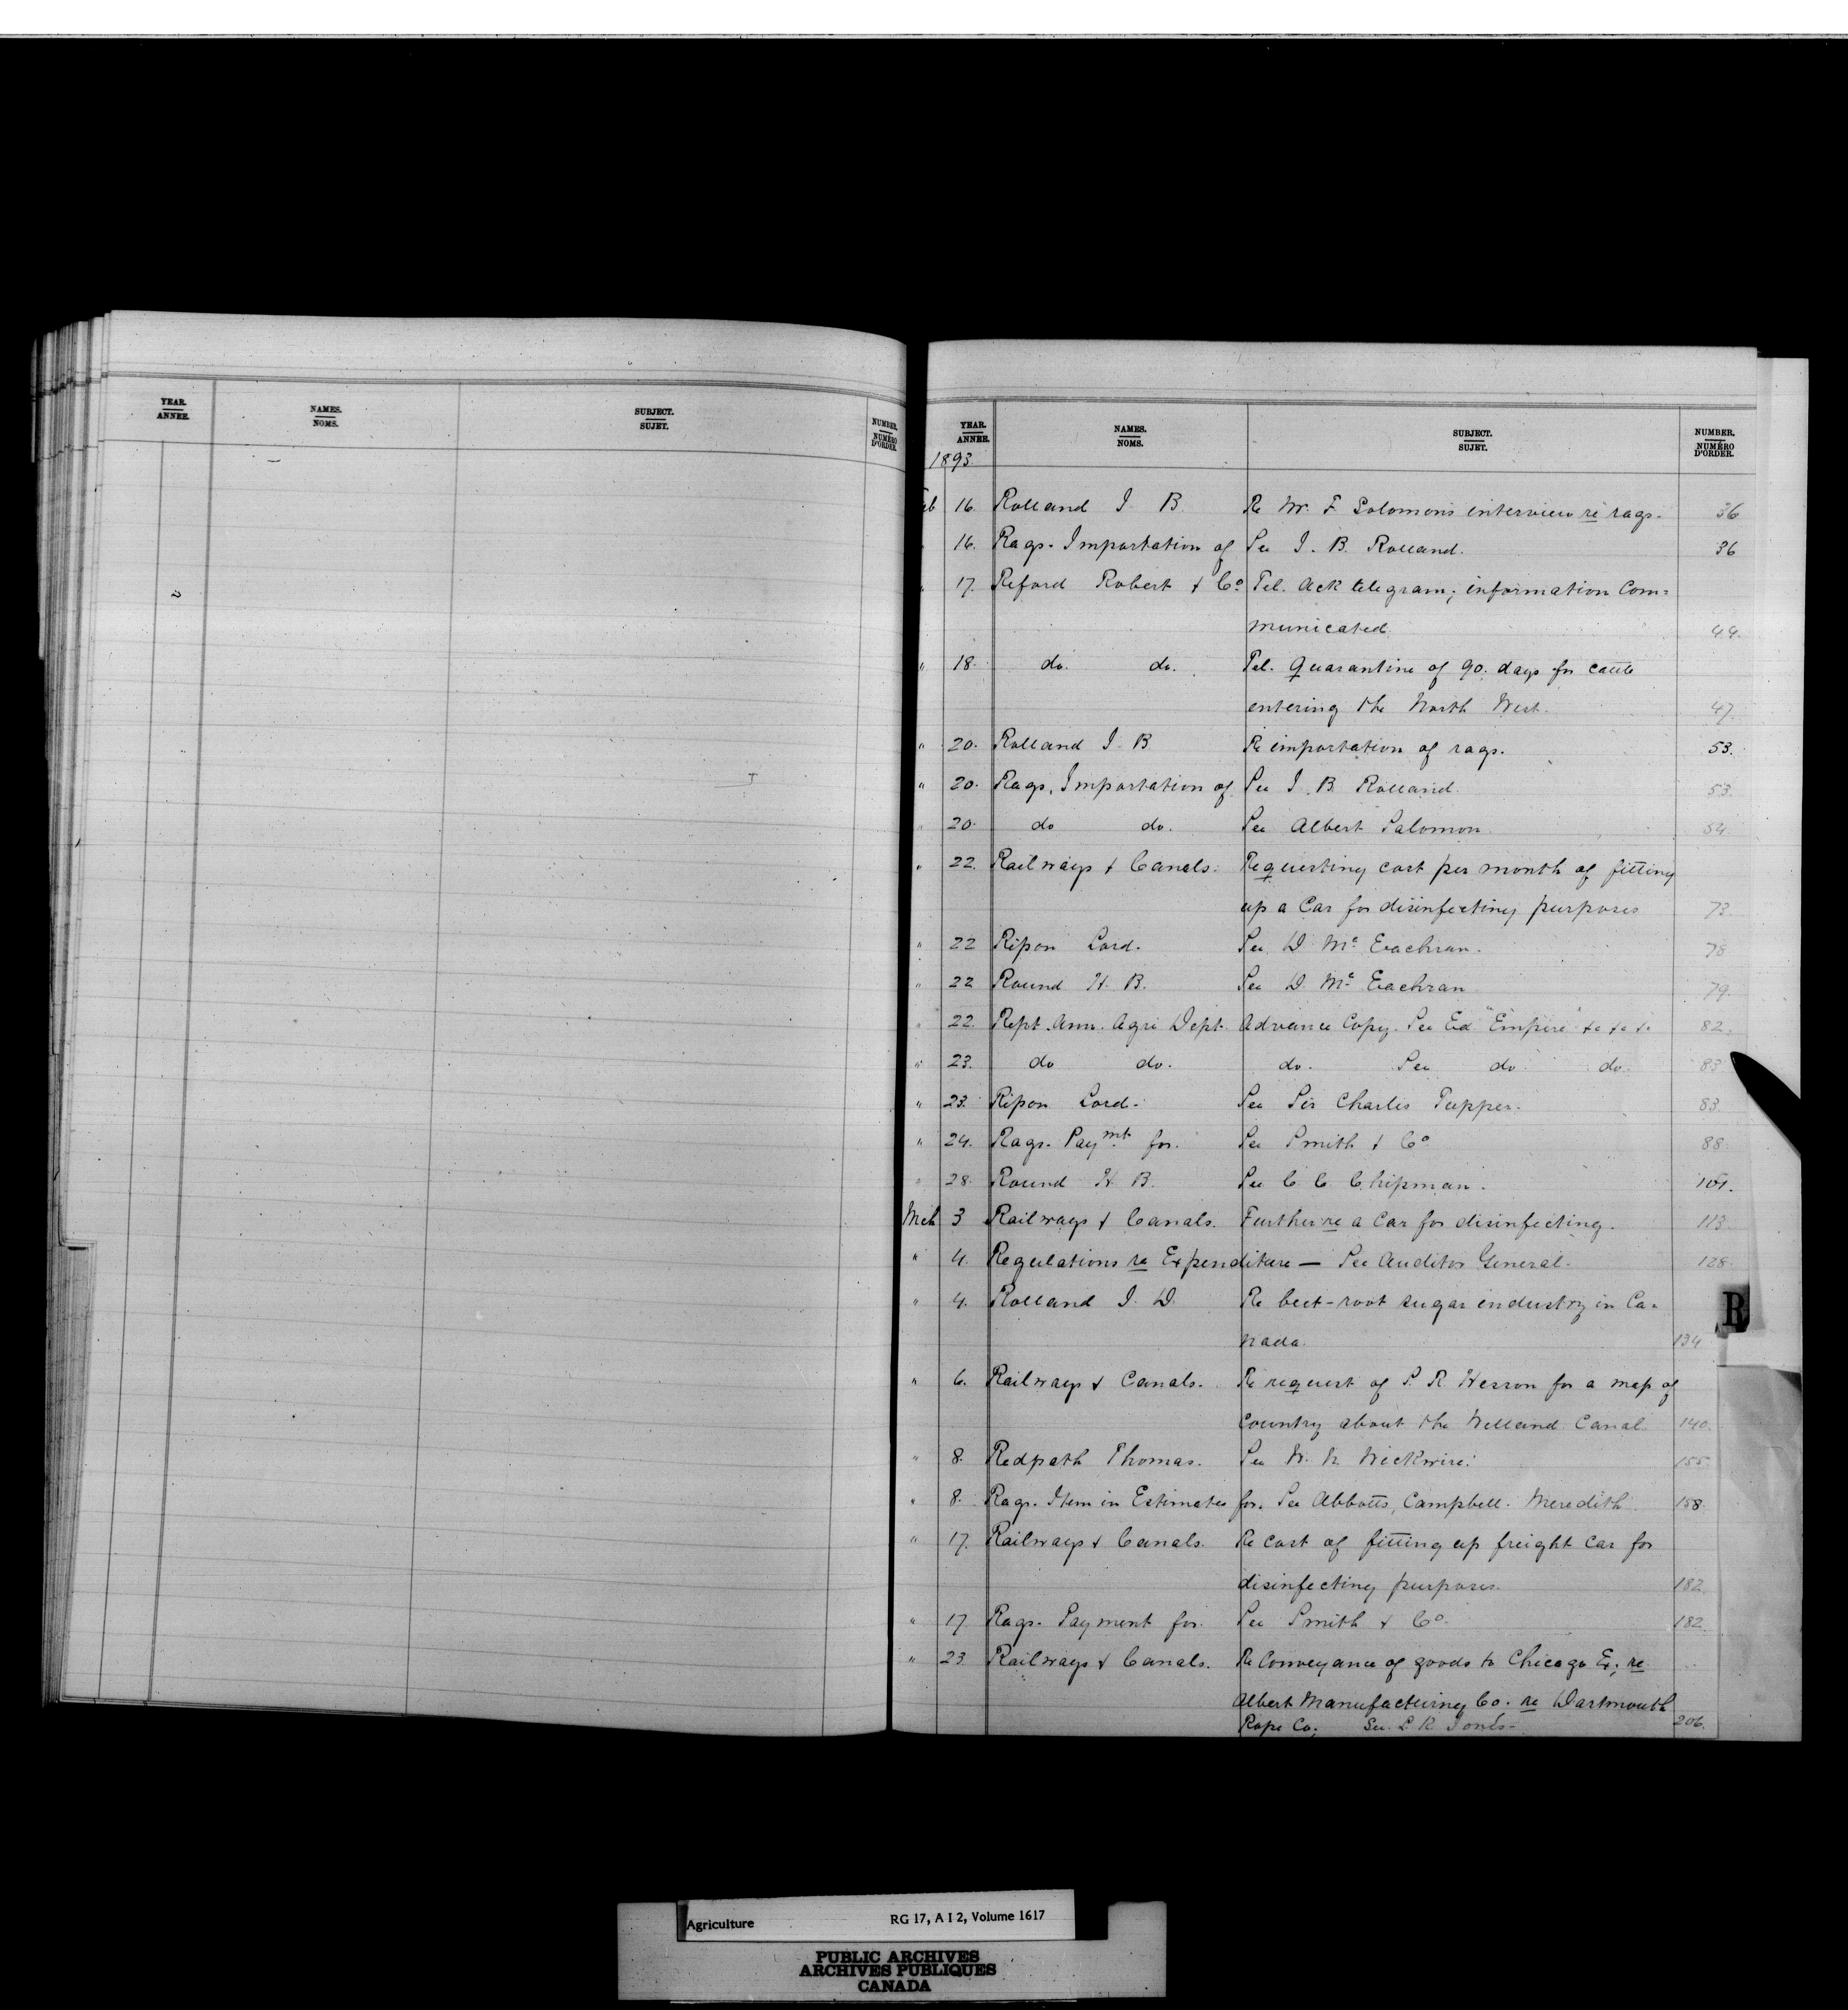 YEAR. ANNEE. NAMES. NOMS. SUBJECT. SUJET. NUMBER. NUMÉRO D'ORDER.
YEAR. ANNEE. NAMES. NOMS. SUBJECT. SUJET. NUMBER. NUMÉRO D'ORDER.
1893.
Feb 16. Rolland J. B. Re Mr. F Solomons interview re rags. 36
" 16. Rags. Importation of See J. B. Rolland. 36
" 17. Reford Robert & Co. Tel. Ack telegram; information Com=
municated. 44.
" 18. do. do. Tel. Quarantine of 90. days for cattle
entering the North West. 47.
" 20. Rolland J. B. Re importation of rags. 53.
" 20. Rags, Importation of See J. B. Rolland. 53.
" 20. do do. See Albert Salomon. 54
" 22. Railways & Canals. Requesting cost per month of fitting
up a Car for disinfecting purposes 73.
" 22 Ripon Lord. See D. Mc Eachran. 78
" 22 Round H. B. See D. Mc Eachran 79.
" 22. Rept. Ann. Agri Dept. Advance Copy. See Ed "Empire" &c &c &c 82.
" 23. do do. do. See do do. 83
" 23. Ripon Lord. See Sir Charles Tupper. 83.
" 24. Rags. Paymt. for. See Smith & Co 88.
" 28. Round H B. See C. C. Chipman. 101.
Mch 3 Railways & Canals. Further re a Car for disinfecting. 113.
" 4. Regulations re Expenditure — See Auditor General. 128.
" 4. Rolland J. D. Re beet-root sugar industry in Ca=
nada. 134
" 6. Railways & Canals. Re request of S. R. Hesson for a map of
Country about the Welland Canal. 140.
" 8. Redpath Thomas. See W. N. Wickwire. 155.
" 8. Rags. Item in Estimates for. See Abbotts, Campbell. Meredith. 158.
" 17. Railways & Canals. Re Cost of fitting up freight Car for
disinfecting purposes. 182.
" 17. Rags. Payment for. See Smith & Co. 182.
" 23. Railways & Canals. Re Conveyance of goods to Chicago Ex; re
Albert Manufacturing Co. re Dartmouth
Rope Co; See. L R Jones- 206.
R
Agriculture RG 17, A I 2, Volume 1617
PUBLIC ARCHIVES
ARCHIVES PUBLIQUES
CANADA